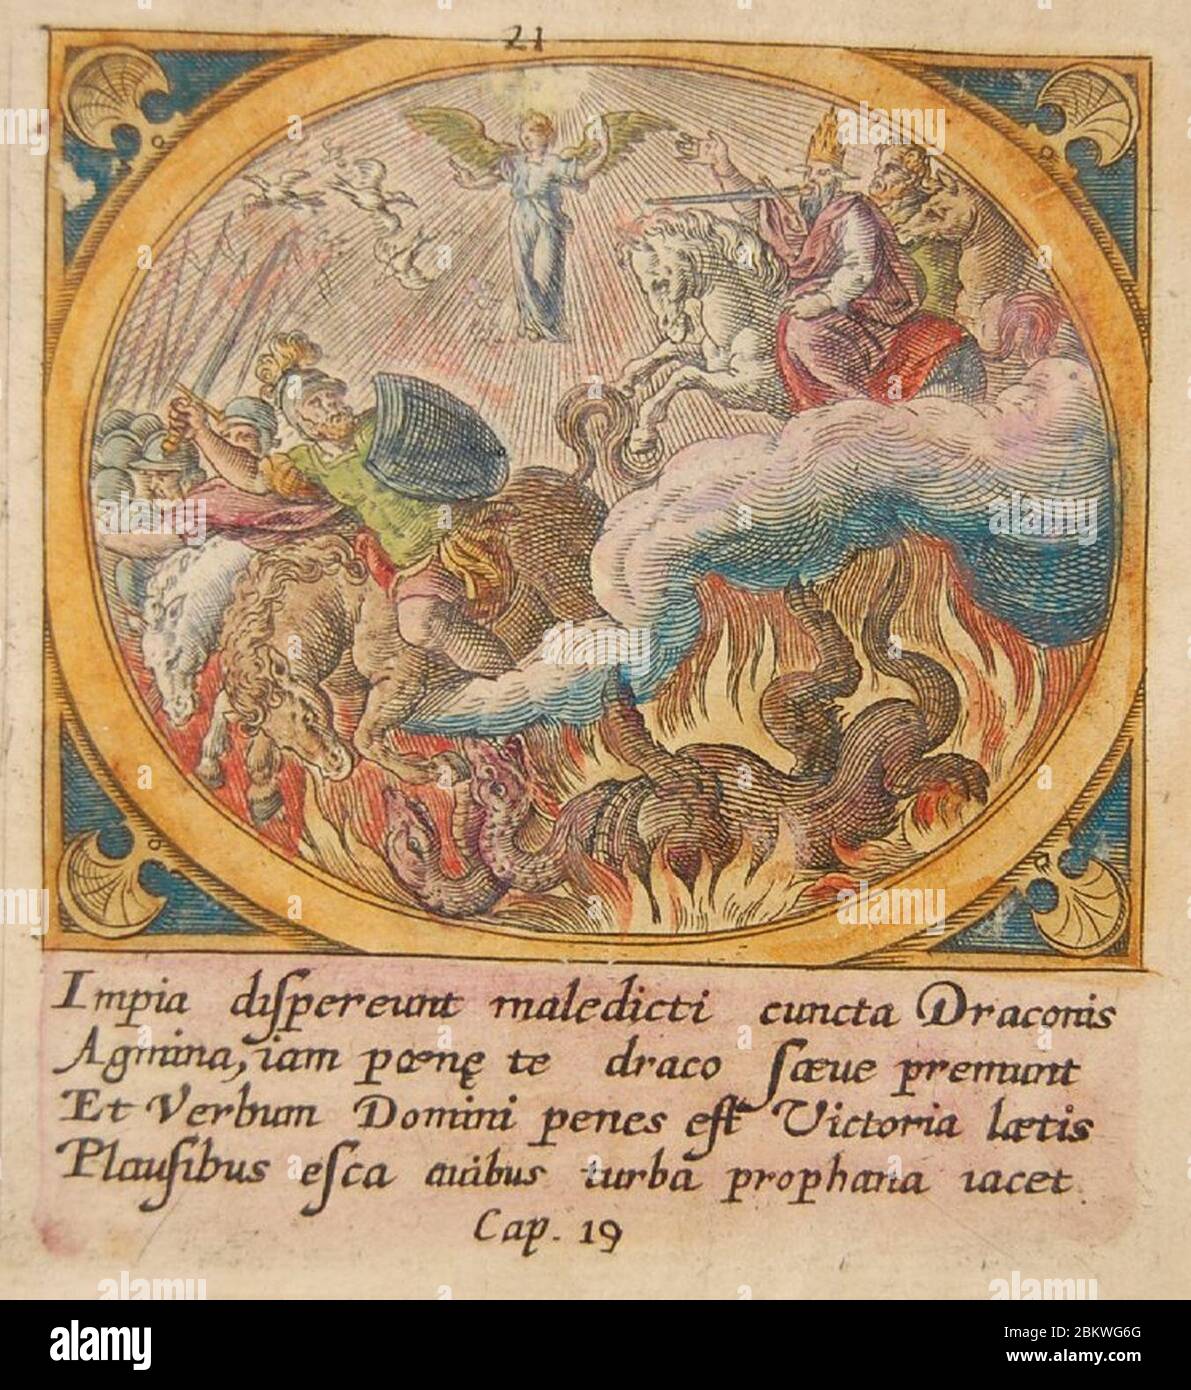 21
Impia diſpereunt maledicti cuncta Draconis
Agmina, iam poenę te draco ſæue premunt
Et Verbum Domini penes eſt Victoria lætis
Plauſibus eſca auibus turba prophana iacet
Cap. 19
alamy
Image ID: 2BKWG6G
www.alamy.com